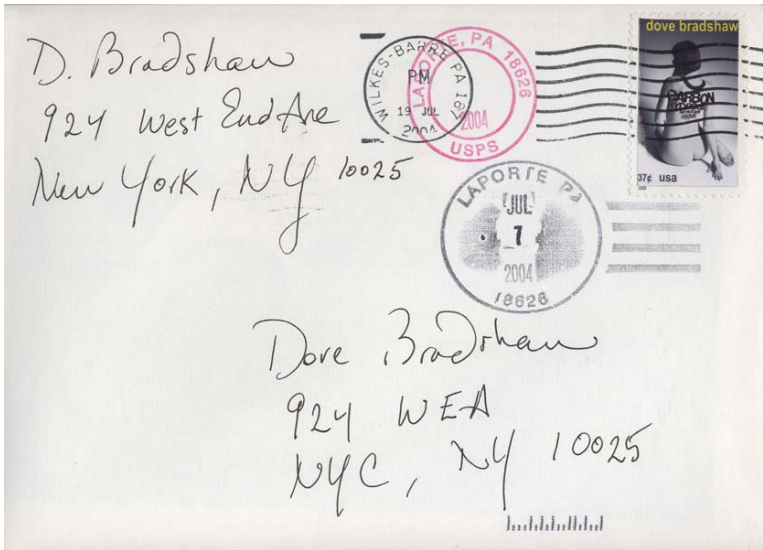 D. Bradshaw
924 West End Ave
New York, NY 10025
WILKES-BARRE PA 187
PM
19 JUL
2004
LAPORTE, PA 18626
2004
USPS
dove bradshaw
CARBON
37¢ usa
LAPORTE PA
JUL
7
2004
18626
Dove Bradshaw
924 WEA
NYC, NY 10025